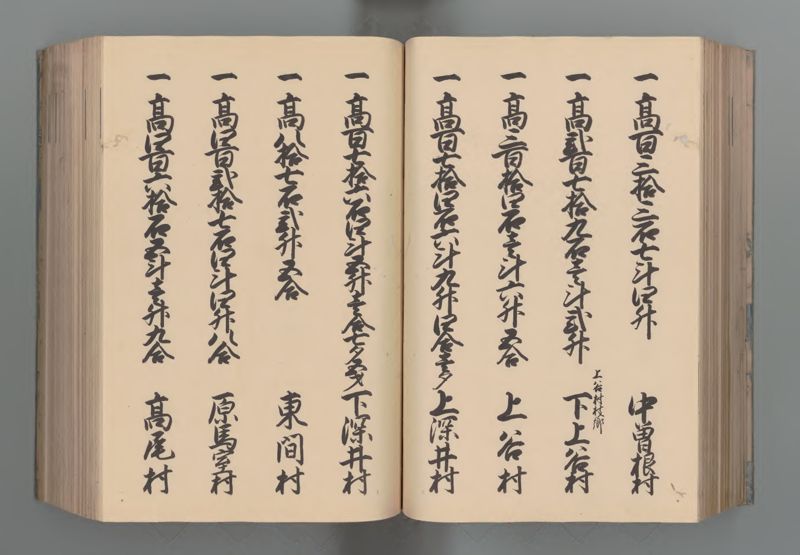 一 高百三拾三石七斗四升 中曽根村
一 高弐百七拾九石壱斗弐升 上谷村枝郷 下上谷村
一 高三百拾四石壱斗六升五合 上谷村
一 高百七拾四石六斗九升四合壱夕 上深井村
一 高百七拾六石四斗五升壱合七夕五才 下深井村
一 高八拾七石弐升五合 東間村
一 高四百弐拾七石四斗四升八合 原馬室村
一 高四百六拾石五斗壱升九合 高尾村